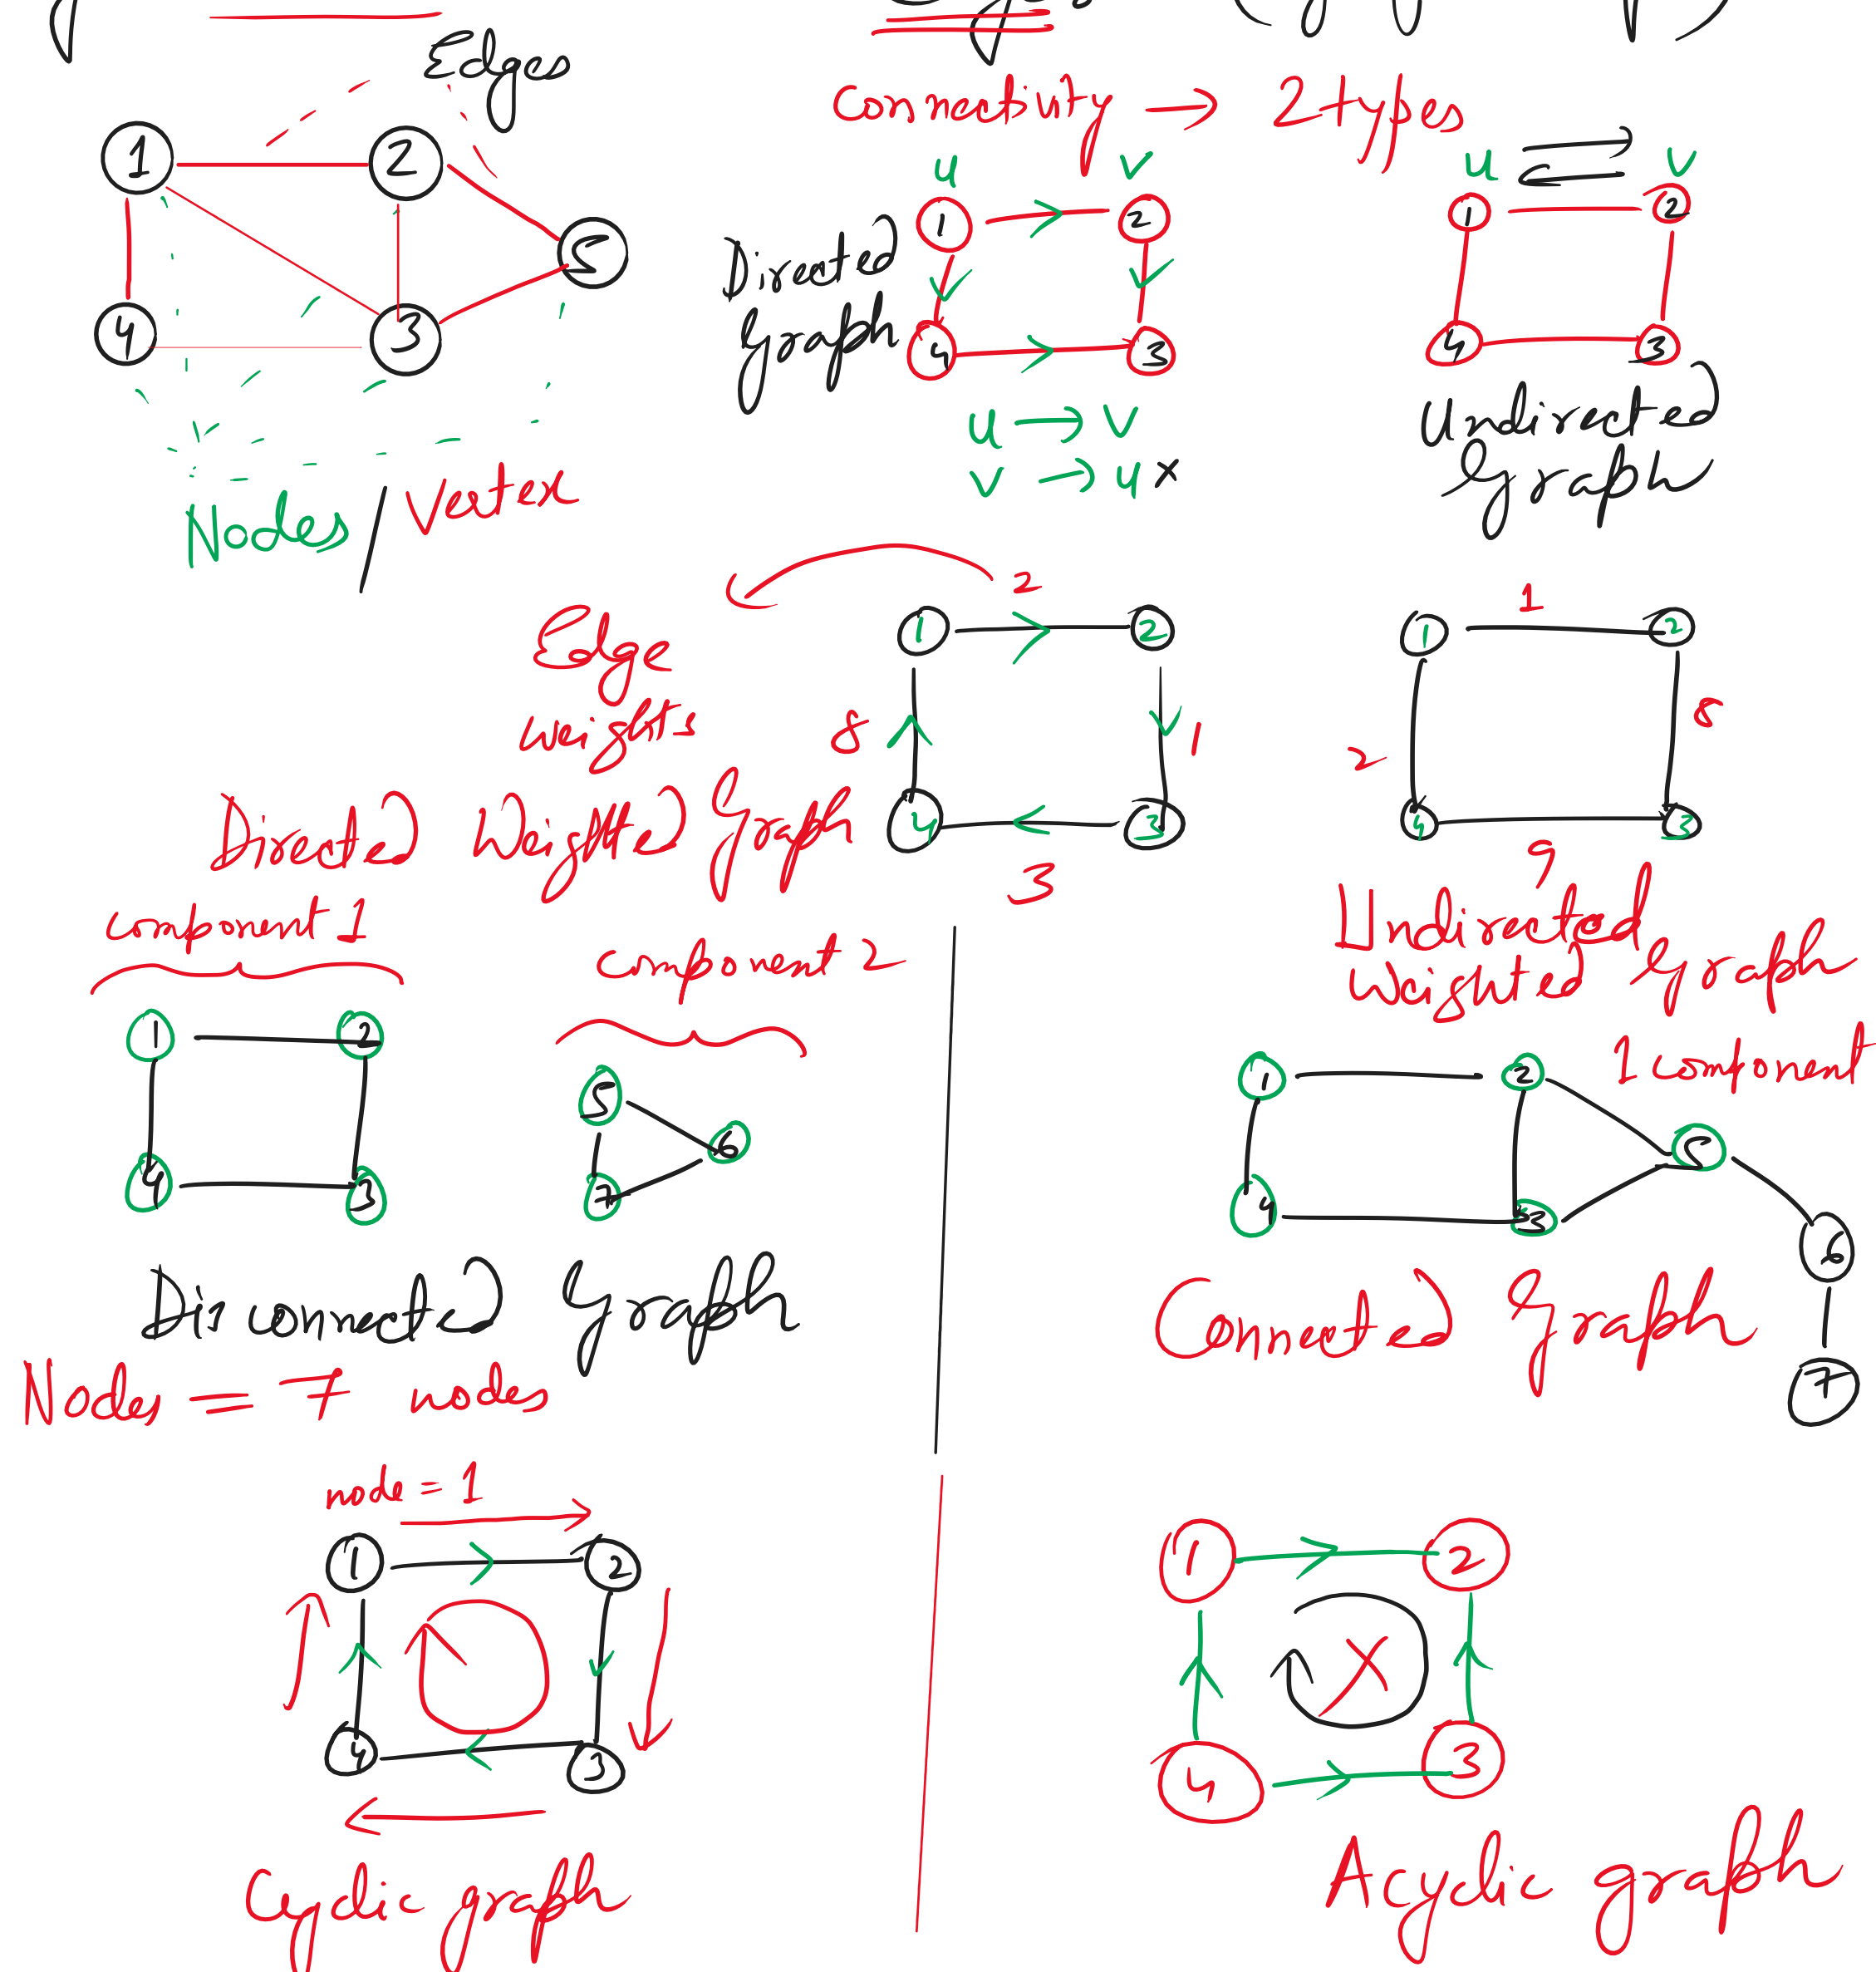 Edges
1 2
5
4 3
Nodes / Vertex
Connectivity → 2 types
u v
1 2
Directed
Graph
4 3
u → v
v → u x
u v
1 2
4 3
Undirected
Graph
Edge
weights
2
1 2
8 1
4 3
3
Directed Weighted Graph
1
1 2
2 8
4 3
9
Undirected
Weighted Graph
component 1
1 2
4 3
component 2
5
6
7
Disconnected Graph
Nodes = 7 nodes
1 component
1 2
5
4 3
6
7
Connected Graph
node = 1
1 2
4 3
Cyclic graph
1 2
4 3
Acyclic graph